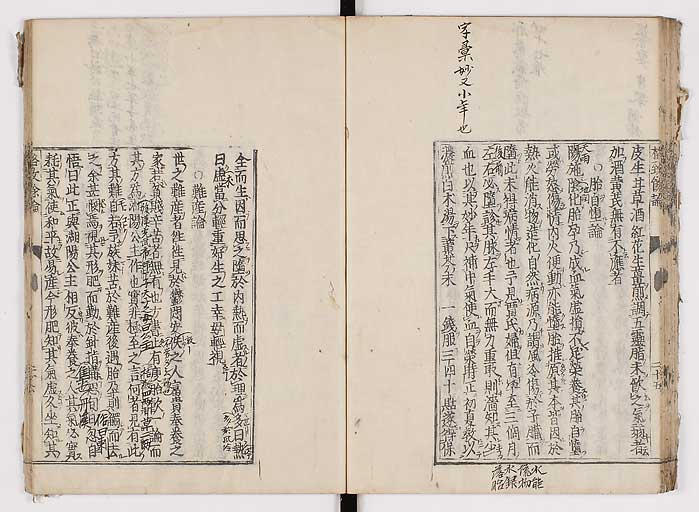 字彙妙又小年也
皮生甘草酒紅花生薑煎調五靈脂末飲之氣弱者
加酒黃芪無有不應者
○胎自墮論
陽施陰化胎孕乃成血氣虛損不足榮養其胎自墮
或勞怒傷情內火便動亦能墮胎推原其本皆因於
熱火能消物造化自然病源乃謂風冷傷於子臟而
墮此未得病情者也予見賈氏婦但有孕至三個月
左右必墮診其脈左手大而無力重取則濇知其少
血也以其妙年只補中氣使血自榮時正初夏教以
濃煎白朮湯下黃芩末一錢服三四十貼遂得保
水能
流物
火鎔
全而生因而思之墮於內熱而虛者於理為多曰熱
曰虛當分輕重好生之工幸勿輕視
○難產論
世之難產者往往見於鬱悶安佚之人富貴奉養之
家若貧賤辛苦者無有也方書止有瘦胎飲一論而
其方為湖陽公主作也實非極至之言何者見有此
方其難自若予族妹苦於難產後遇胎孕則觸而去
之余甚憫焉視其形肥而勤於針指構思旬日忽自
悟曰此正與湖陽公主相反彼奉養之人其氣必實
耗其氣使和平故易產今形肥知其氣虛久坐知其
格致餘論